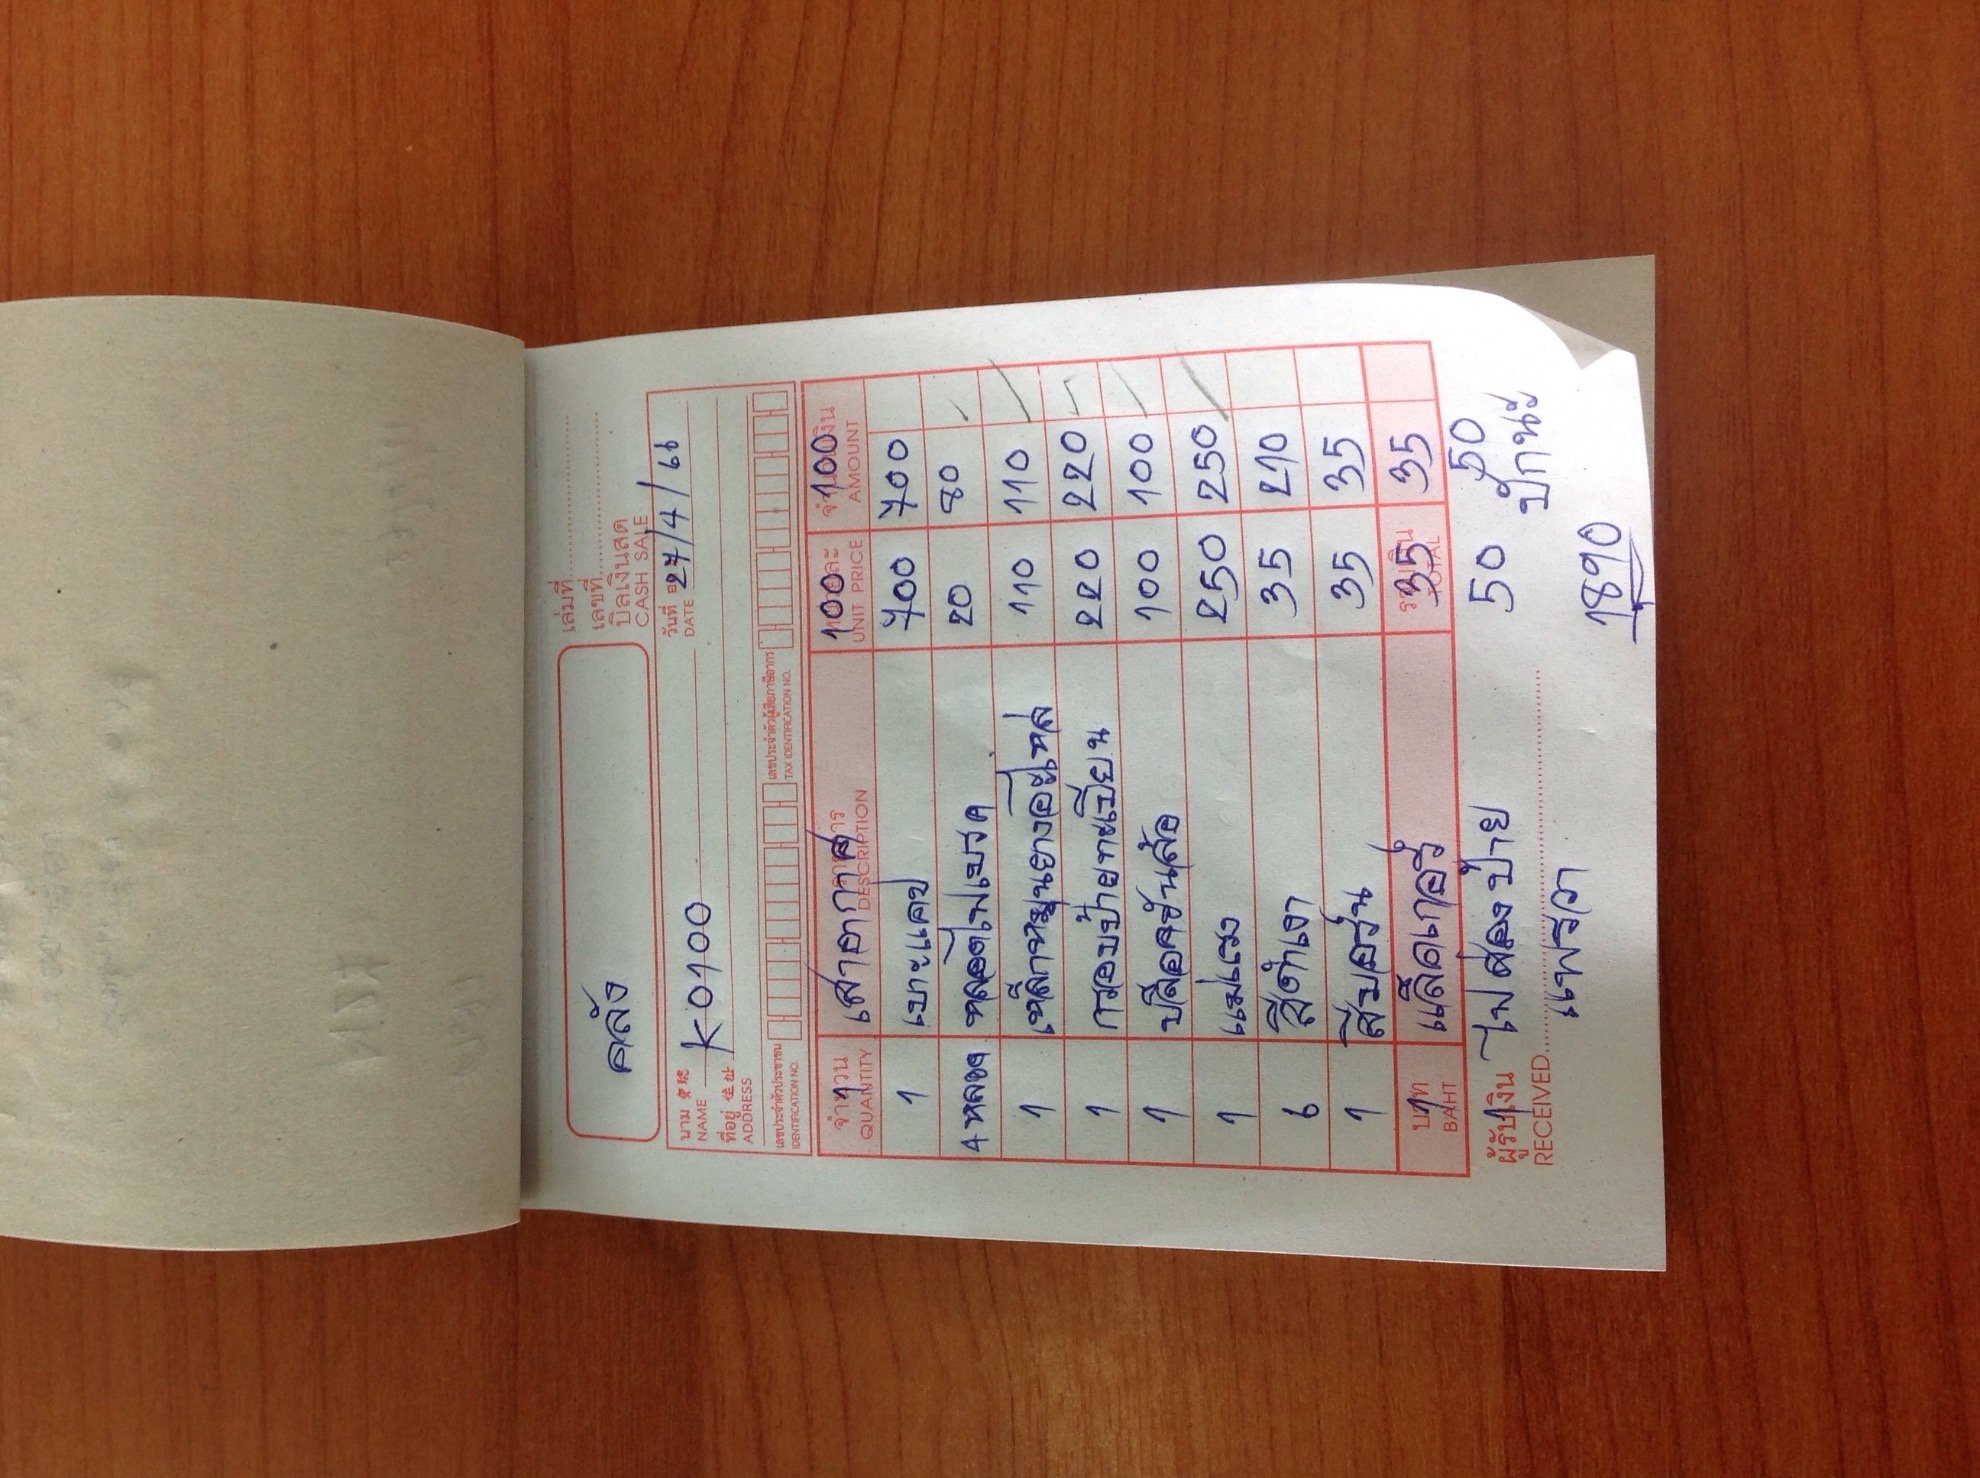 เล่มที่
เลขที่
บิลเงินสด
CASH SALE
คลัง
วันที่ 27/4/66
DATE
นาม
NAME K0100
ที่อยู่
ADDRESS
เลขประจำตัวประชาชน เลขประจำตัวผู้เสียภาษีอากร
IDENTIFICATION NO. TAX IDENTIFICATION NO.
จำนวน รายการ หน่วยละ จำนวนเงิน
QUANTITY DESCRIPTION UNIT PRICE AMOUNT
1 เสาอากาศ 100 100
1 เบาะแคป 700 700
4 หลอด หลอดไฟเบรค 20 80
1 110 110
1 กรอบป้ายทะเบียน 220 220
1 100 100
1 แม่แรง 250 250
6 สีดำเงา 35 210
1 สีบอร์น 35 35
บาท รวมเงิน
BAHT TOTAL
1 แล็คเกอร์ 35 35
ผู้รับเงิน
1 ไฟส่องป้าย 50 50
RECEIVED
แพรวา
ปักนะ
1890